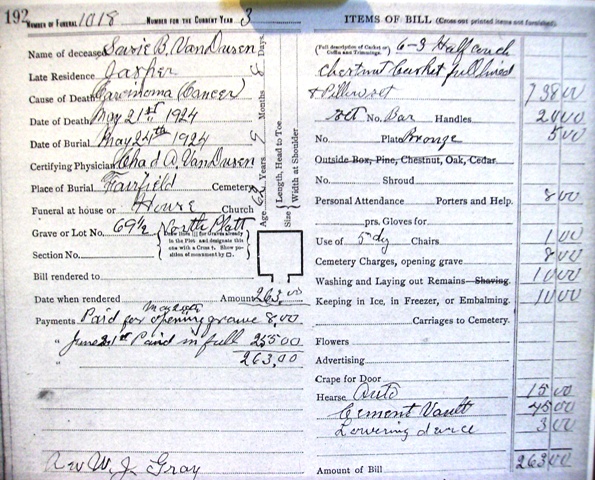 192
NUMBER OF FUNERAL 1018 NUMBER FOR THE CURRENT YEAR 3
Name of deceased Susie B. VanDusen
Late Residence Jasper
Cause of Death Carcinoma (Cancer)
Date of Death May 21st 1924
Date of Burial May 24th 1924
Certifying Physician Chad A. VanDusen
Place of Burial Fairfield Cemetery
Funeral at house or House Church
Grave or Lot No. 69½ North Platt
Section No.
Bill rendered to
Date when rendered Amount 263.00
Payments Paid for opening grave 8.00
" June 21st Paid in full 255.00
" 263.00
Rev W. J. Gray
Age Years 9 Months 8 Days
Size { Length, Head to Toe.
Width at Shoulder
ITEMS OF BILL (Cross out printed items not furnished)
(Full description of Casket or Coffin and Trimmings) 6-3 Half couch
chestnut Casket full lined
& Pillow set
set No. Bar Handles 20 00
No. Plate Bronze 5 00
Outside Box, Pine, Chestnut, Oak, Cedar
No. Shroud
Personal Attendance Porters and Help. 8 00
prs. Gloves for
Use of 5 dy Chairs 1 00
Cemetery Charges, opening grave 8 00
Washing and Laying out Remains Shaving. 10 00
Keeping in Ice, in Freezer, or Embalming. 10 00
Carriages to Cemetery.
Flowers
Advertising
Crape for Door
Hearse Auto 15 00
Cement Vault 45 00
Lowering device 3 00
Amount of Bill 263 00